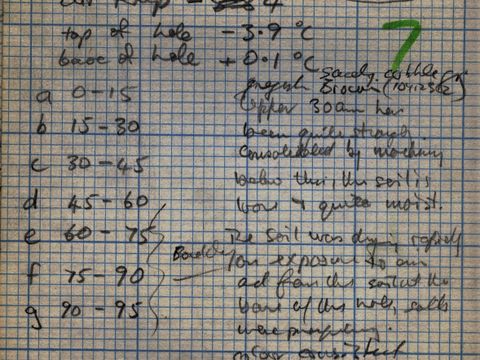 4
7
top of hole - 3.9 °C
base of hole + 0.1 °C
sandy cobble
greyish Brown (10YR 5/2)
a 0-15
Upper 30cm has
b 15-30
been quite strongly
consolidated by machinery
c 30-45
below this, the soil is
d 45-60
+ quite moist.
e 60-75
The soil was drying rapidly
Bouldery
on exposure to air
f 75-90
and from the soil at the
g 90-95
base of the hole, salts
were